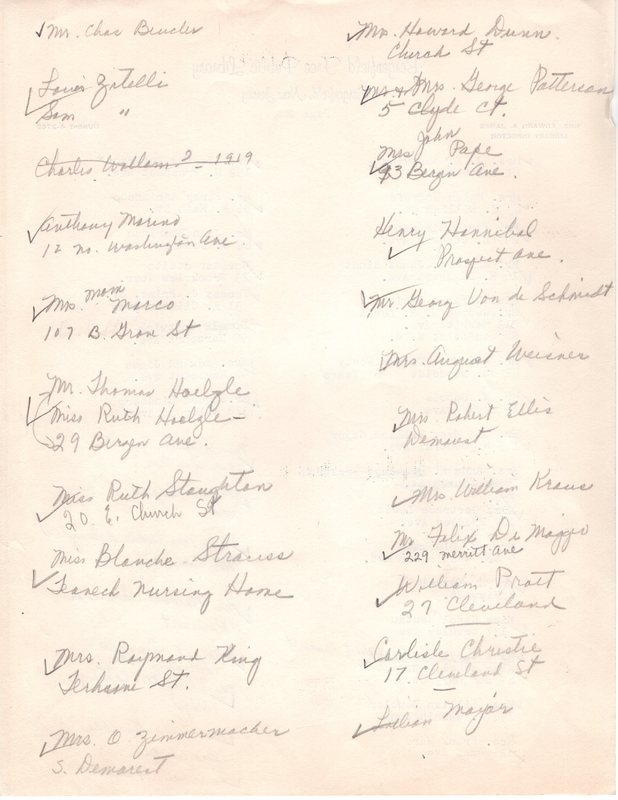 Mr. Chas Beucler
Louis Zitelli
Sam "
Charles Wallam 2-1919
Anthony Marino
12 No. Washington Ave
Mrs. Mom Marco
107 B. Grove St
Mr. Thomas Hoelzle
Miss Ruth Hoelzle -
29 Bergen Ave.
Miss Ruth Stoughton
20. E. Church St
Miss Blanche Strauss
Teaneck Nursing Home
Mrs. Raymond King
Terhune St.
Mrs. O Zimmermacher
S. Demarest
Mrs. Howard Dunn
Church St
Mr & Mrs. George Patterson
5 Clyde Ct.
Mrs John Pape
93 Bergen Ave.
Henry Hannibal
Prospect Ave.
Mr. Georg Von de Schmidt
Mrs. August Weisner
Mrs Robert Ellis
Demarest
Mrs William Kraus
Mr Felix Di Maggio
229 Merritt Ave
William Pratt
27 Cleveland
Carlisle Christie
17 Cleveland St
Lillian Major